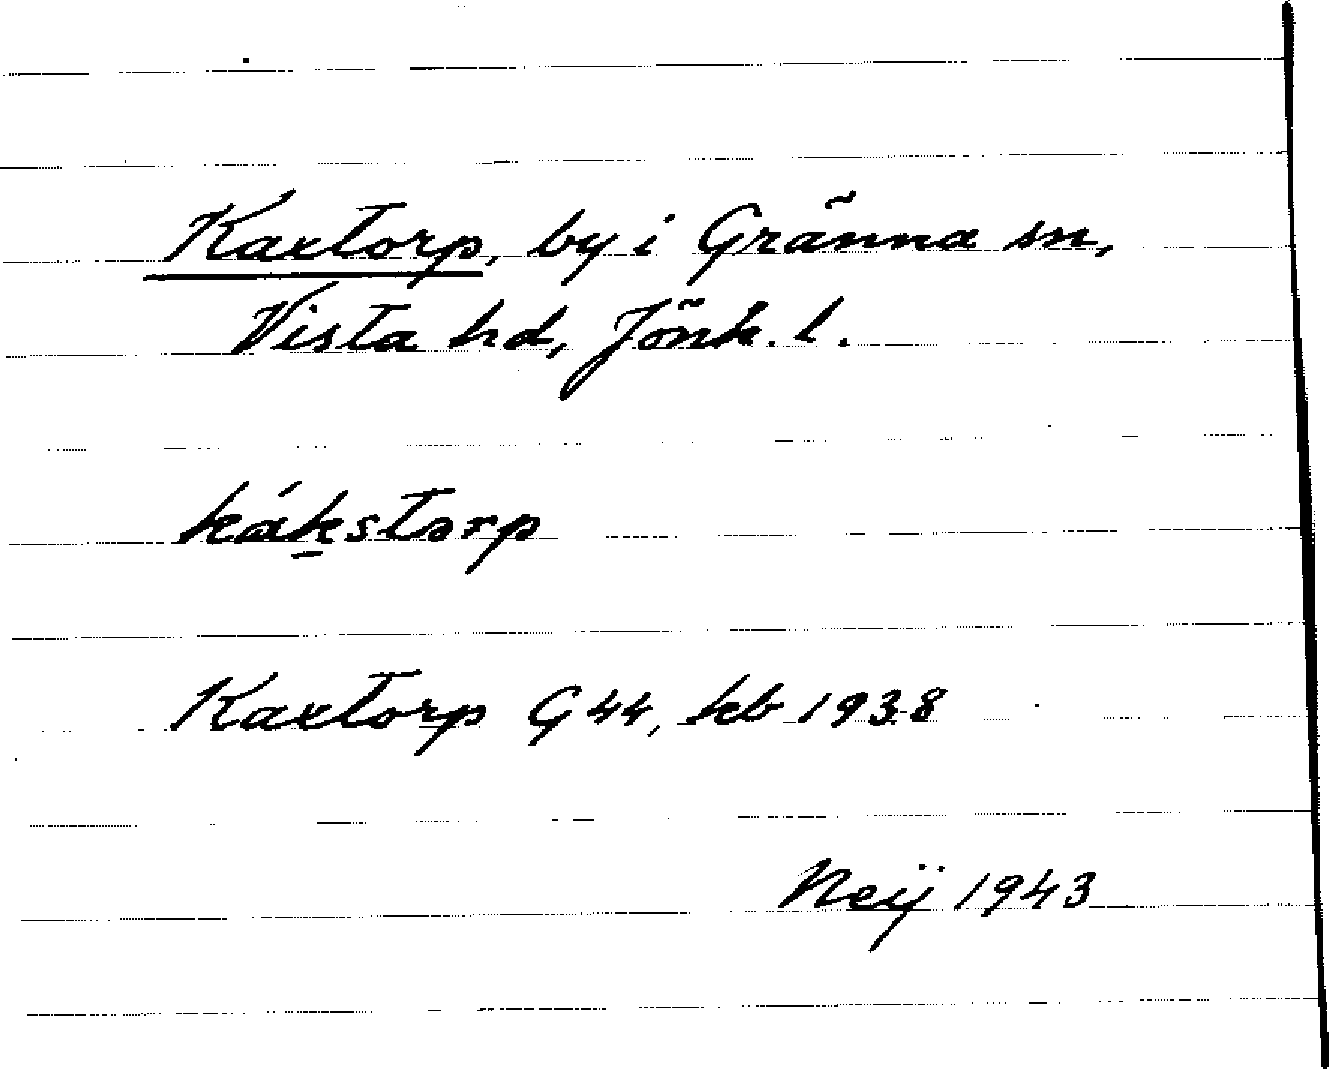 Kaxtorp, by i Gränna sn,
Vista hd, Jönk. l.
kák̠storp
Kaxtorp G 44, kb 1938
Neij 1943